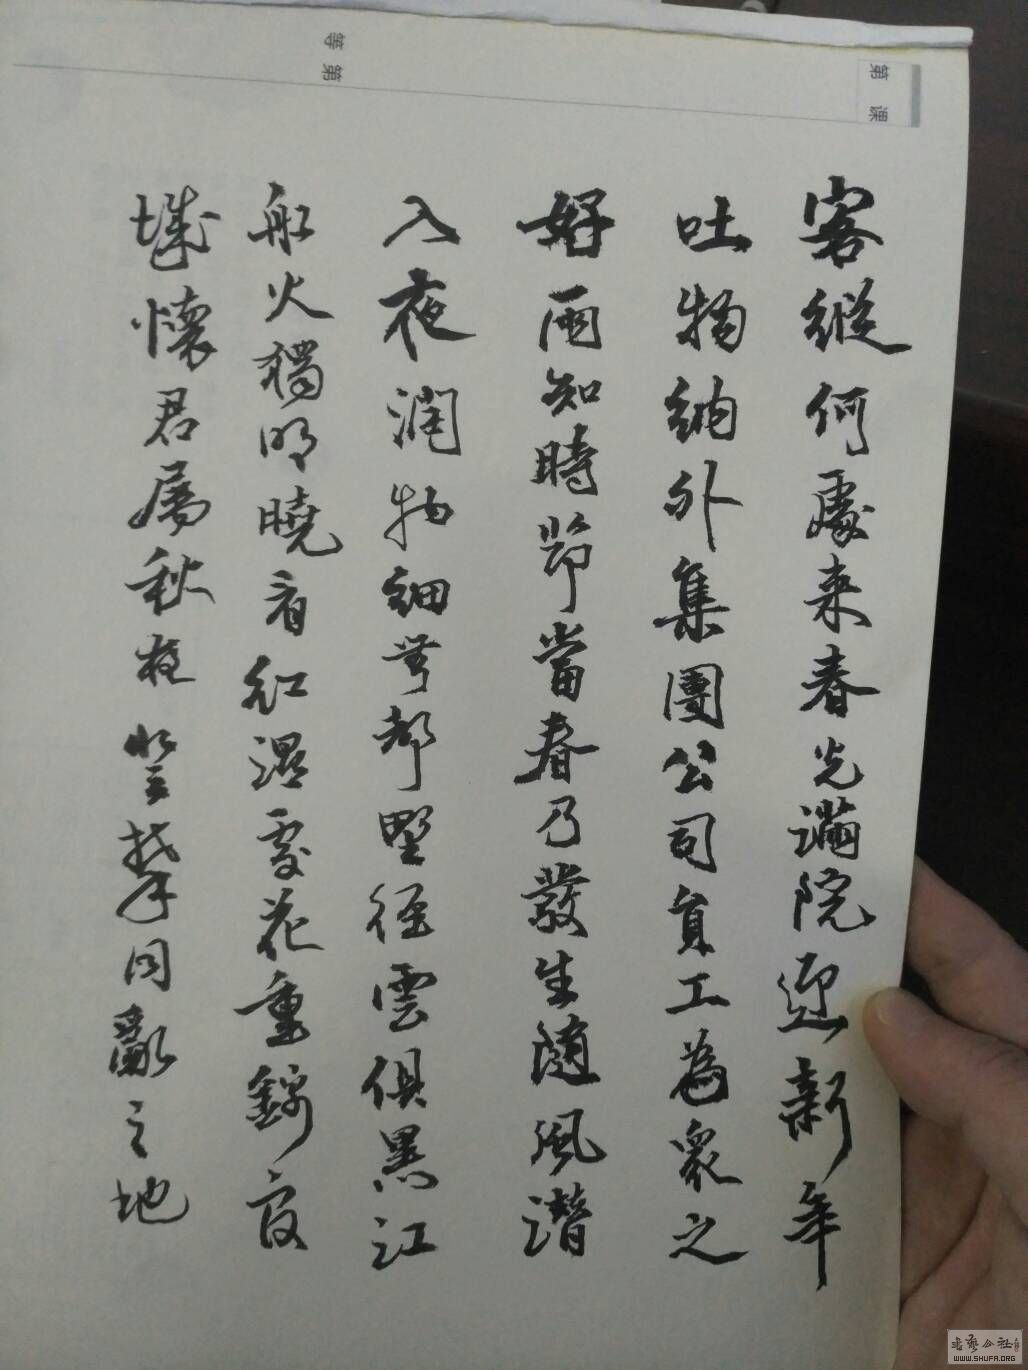 第 课
等第
客縱何處来春光滿院迎新年
吐物納外集團公司員工為眾之
好雨知時節當春乃發生隨風潛
入夜潤物細無都野徑雲俱黑江
船火獨明曉看紅濕處花重錦官
城懷君屬秋夜同歡之地
WWW.SHUFA.ORG